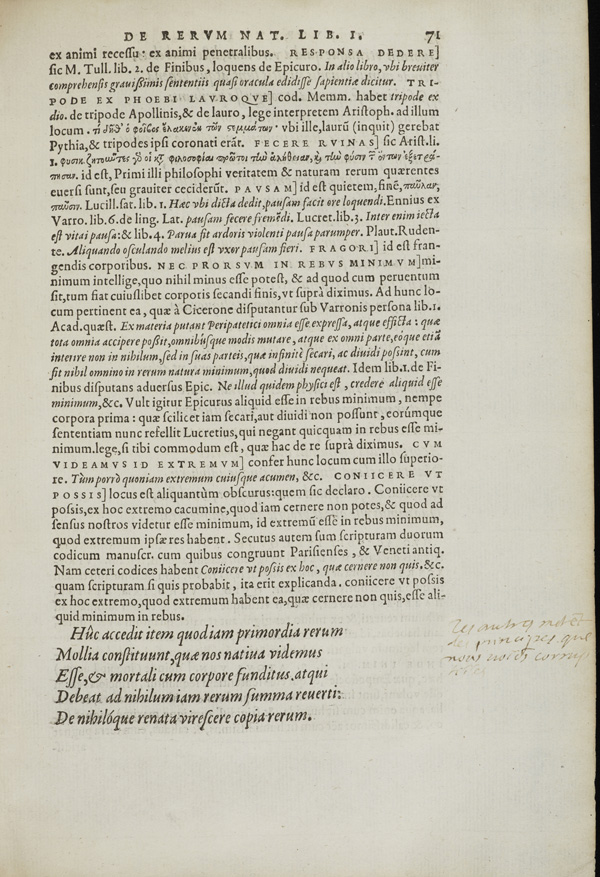 DE RERVM NAT. LIB. I. 71
ex animi recessu: ex animi penetralibus. RESPONSA DEDERE]
sic M. Tull. lib. 2. de Finibus, loquens de Epicuro. In alio libro, vbi breuiter
comprehensis grauissimis sententiis quasi oracula edidisse sapientiæ dicitur. TRI-
PODE EX PHOEBI LAVROQVE] cod. Memm. habet tripode ex
dio. de tripode Apollinis, & de lauro, lege interpretem Aristoph. ad illum
locum. ὁ φοῖβος ἔλακεν τῶν στεμμάτων· vbi ille, laurū (inquit) gerebat
Pythia, & tripodes ipsi coronati erāt. FECERE RVINAS] sic Arist. li.
1. φυσικ. ζητοῦντες οἱ φιλοσοφίαν πρῶτοι ἀλήθειαν, φύσιν ὄντων
id est, Primi illi philosophi veritatem & naturam rerum quærentes
euersi sunt, seu grauiter ceciderūt. PAVSAM] id est quietem, finē, παῦλαν,
παῦσιν. Lucill. sat. lib. 1. Hæc vbi dicta dedit, pausam facit ore loquendi. Ennius ex
Varro. lib. 6. de ling. Lat. pausam fecere fremēdi. Lucret. lib. 3. Inter enim iecta
est vitai pausa: & lib. 4. Parua fit ardoris violenti pausa parumper. Plaut. Ruden-
te. Aliquando osculando melius est vxor pausam fieri. FRAGORI] id est fran-
gendis corporibus. NEC PRORSVM IN REBVS MINIMVM] mi-
nimum intellige, quo nihil minus esse potest, & ad quod cum peruentum
sit, tum fiat cuiuslibet corporis secandi finis, vt suprà diximus. Ad hunc lo-
cum pertinent ea, quæ à Cicerone disputantur sub Varronis persona lib. 1.
Acad. quæst. Ex materia putant Peripatetici omnia esse expressa, atque efficta: quæ
tota omnia accipere possit, omnibúsque modis mutare, atque ex omni parte, eóque etiā
interire non in nihilum, sed in suas parteis, quæ infinitè secari, ac diuidi possint, cum
sit nihil omnino in rerum natura minimum, quod diuidi nequeat. Idem lib. 1. de Fi-
nibus disputans aduersus Epic. Ne illud quidem physici est, credere aliquid esse
minimum, &c. Vult igitur Epicurus aliquid esse in rebus minimum, nempe
corpora prima: quæ scilicet iam secari, aut diuidi non possunt, eorúmque
sententiam nunc refellit Lucretius, qui negant quicquam in rebus esse mi-
nimum. lege, si tibi commodum est, quæ hac de re suprà diximus. CVM
VIDEAMVS ID EXTREMVM] confer hunc locum cum illo superio-
re. Tùm porrò quoniam extremum cuiusque acumen, &c. CONIICERE VT
POSSIS] locus est aliquantùm obscurus: quem sic declaro. Coniicere vt
possis, ex hoc extremo cacumine, quod iam cernere non potes, & quod ad
sensus nostros videtur esse minimum, id extremū esse in rebus minimum,
quod extremum ipsæ res habent. Secutus autem sum scripturam duorum
codicum manuscr. cum quibus congruunt Parisienses, & Veneti antiq.
Nam ceteri codices habent Coniicere vt possis ex hoc, quæ cernere non quis. &c.
quam scripturam si quis probabit, ita erit explicanda. coniicere vt possis
ex hoc extremo, quod extremum habent ea, quæ cernere non quis, esse ali-
quid minimum in rebus.
Hûc accedit item quodiam primordia rerum
Mollia constituunt, quæ nos natiua videmus
Esse, & mortali cum corpore funditus. atqui
Debeat ad nihilum iam rerum summa reuerti:
De nihilóque renata virescere copia rerum.
les autres
les principes que
nous